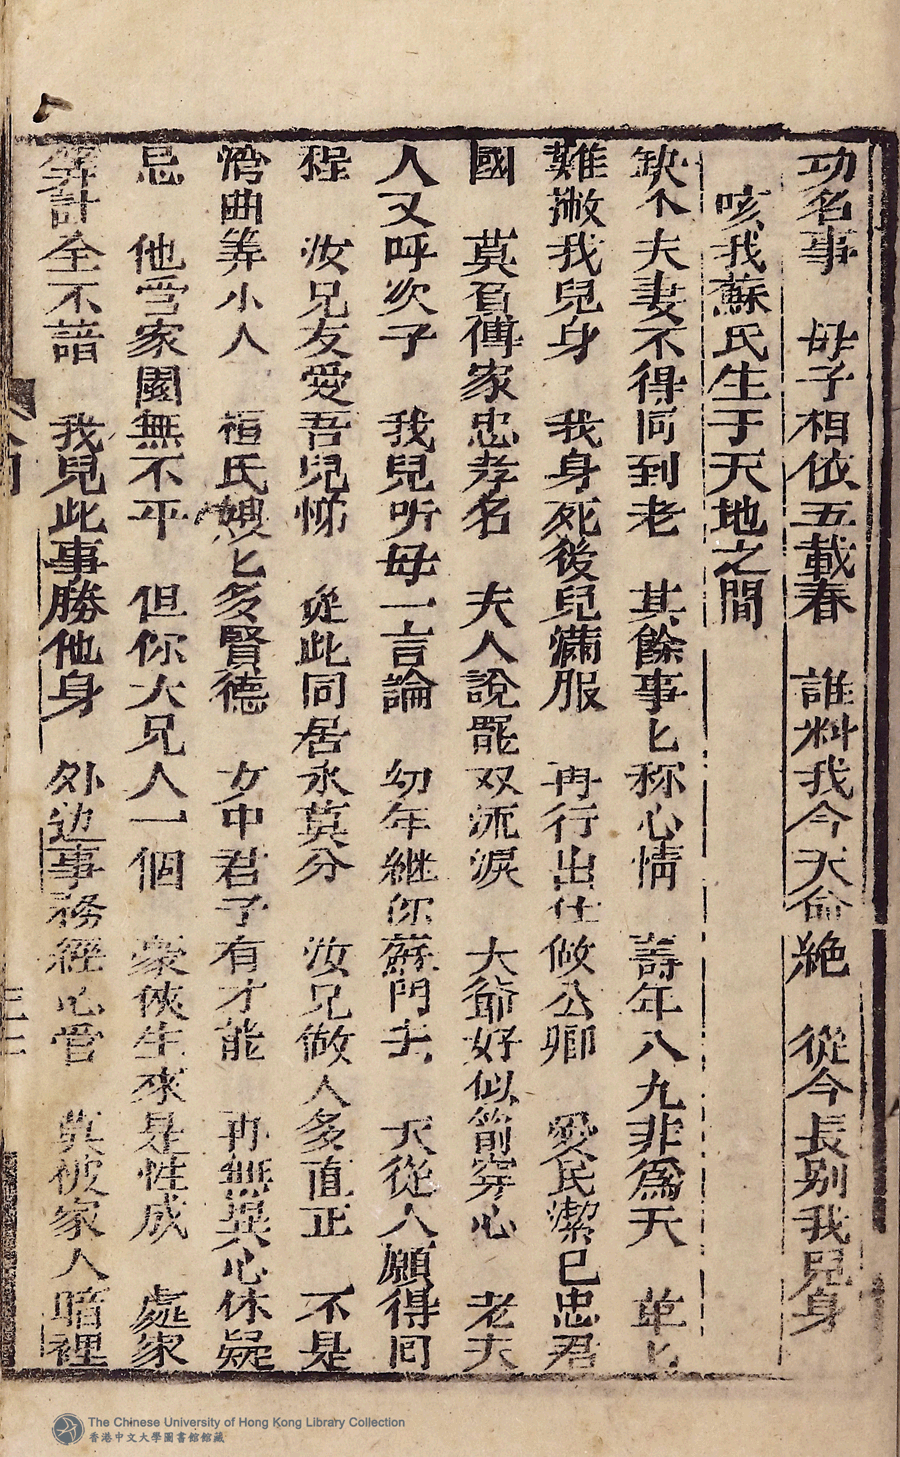 功名事　母子相依五載春　誰料我今天命絶　從今長别我兒身
咳我蘇氏生于天地之間
缺个夫妻不得同到老　其餘事匕称心情　壽年八九非為夭　苐匕
難撇我兒身　我身死後兒滿服　再行出仕做公卿　愛民潔已忠君
國　莫負傅家忠孝名　夫人說罷双流淚　大爺好似箭穿心　老夫
人又呼次子　我兒听母一言論　幼年継你蘇門去　天從人願得囘
程　汝兄友愛吾兒悌　從此同居永莫分　汝兄做人多直正　不是
㣿曲等小人　桓氏嫂匕多賢德　女中君子有才能　再無異心休疑
忌　他营家園無不平　但你大兄人一個　豪俠生來是性成　處家
算計全不諳　我兒此事勝他身　外边事務經心管　莫被家人暗裡
The Chinese University of Hong Kong Library Collection
香港中文大學圖書館館藏